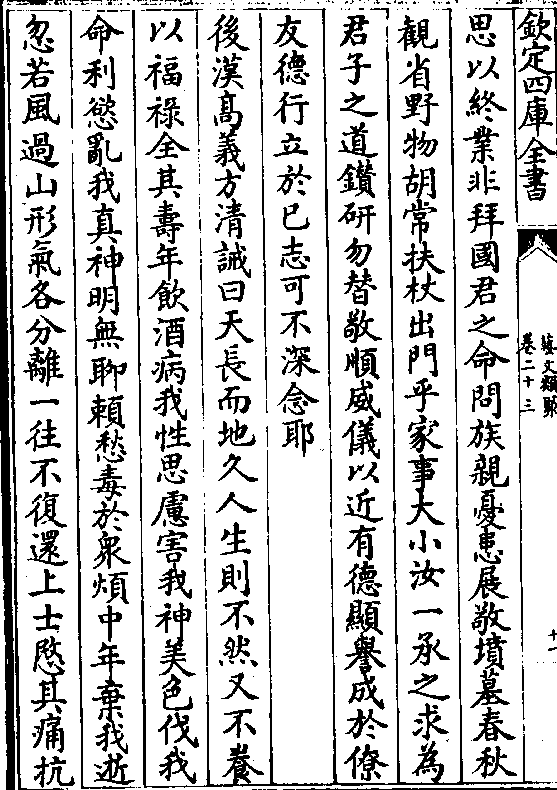 欽定四庫全書
藝文類聚
卷二十三
十一
思以終業非拜國君之命問族親憂患展敬墳墓春秋
觀省野物胡常扶杖出門乎家事大小汝一承之求為
君子之道鑚研勿替敬順威儀以近有德顯譽成於僚
友德行立於已志可不深念耶
後漢髙義方清誡曰天長而地久人生則不然又不養
以福祿全其壽年飲酒病我性思慮害我神美色伐我
命利慾亂我真神明無聊頼愁毒於衆煩中年棄我逝
忽若風過山形氣各分離一往不復還上士愍其痛抗